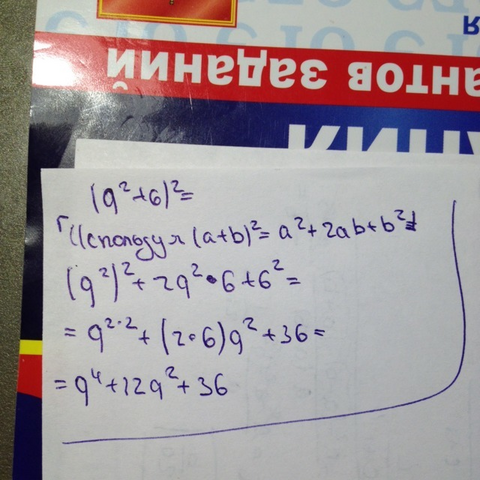 антов заданий
(q²+6)²=
Используя (a+b)²= a²+2ab+b²
(q²)²+2q²•6+6²=
=q²·²+(2•6)q²+36=
=q⁴+12q²+36